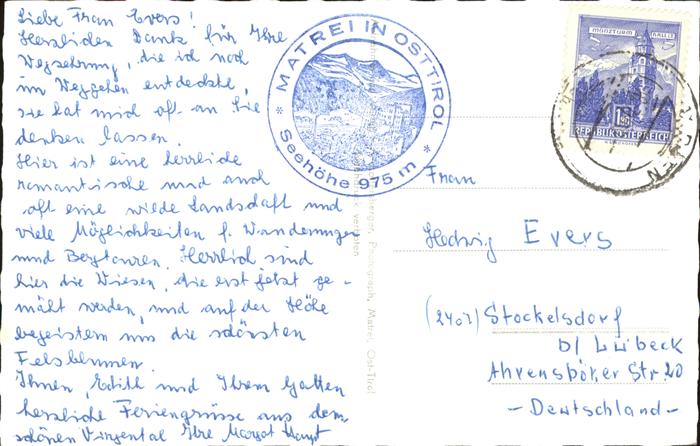 Liebe Frau Evers!
Herzlichen Dank für Ihre
Wegzehrung, die ich noch
im Weggehen entdeckte,
sie hat mich oft an Sie
denken lassen.
Hier ist eine herrliche
romantische und auch
oft eine wilde Landschaft und
viele Möglichkeiten f. Wanderungen
und Bergtouren. Herrlich sind
hier die Wiesen, die erst jetzt ge-
mäht werden, und auf der Höhe
begeistern uns die schönsten
Felsblumen.
Ihnen, Edith und Ihrem Gatten
herzliche Feriengrüsse aus dem
schönen Virgental Ihre Margot
MATREI IN OSTTIROL
Seehöhe 975 m
Photograph, Matrei, Ost-Tirol
verboten
MÜNZTURM HALL I.T.
REPUBLIK ÖSTERREICH
Frau
Hedwig Evers
(2407) Stockelsdorf
b/ Lübeck
Ahrensböker Str. 20
- Deutschland -